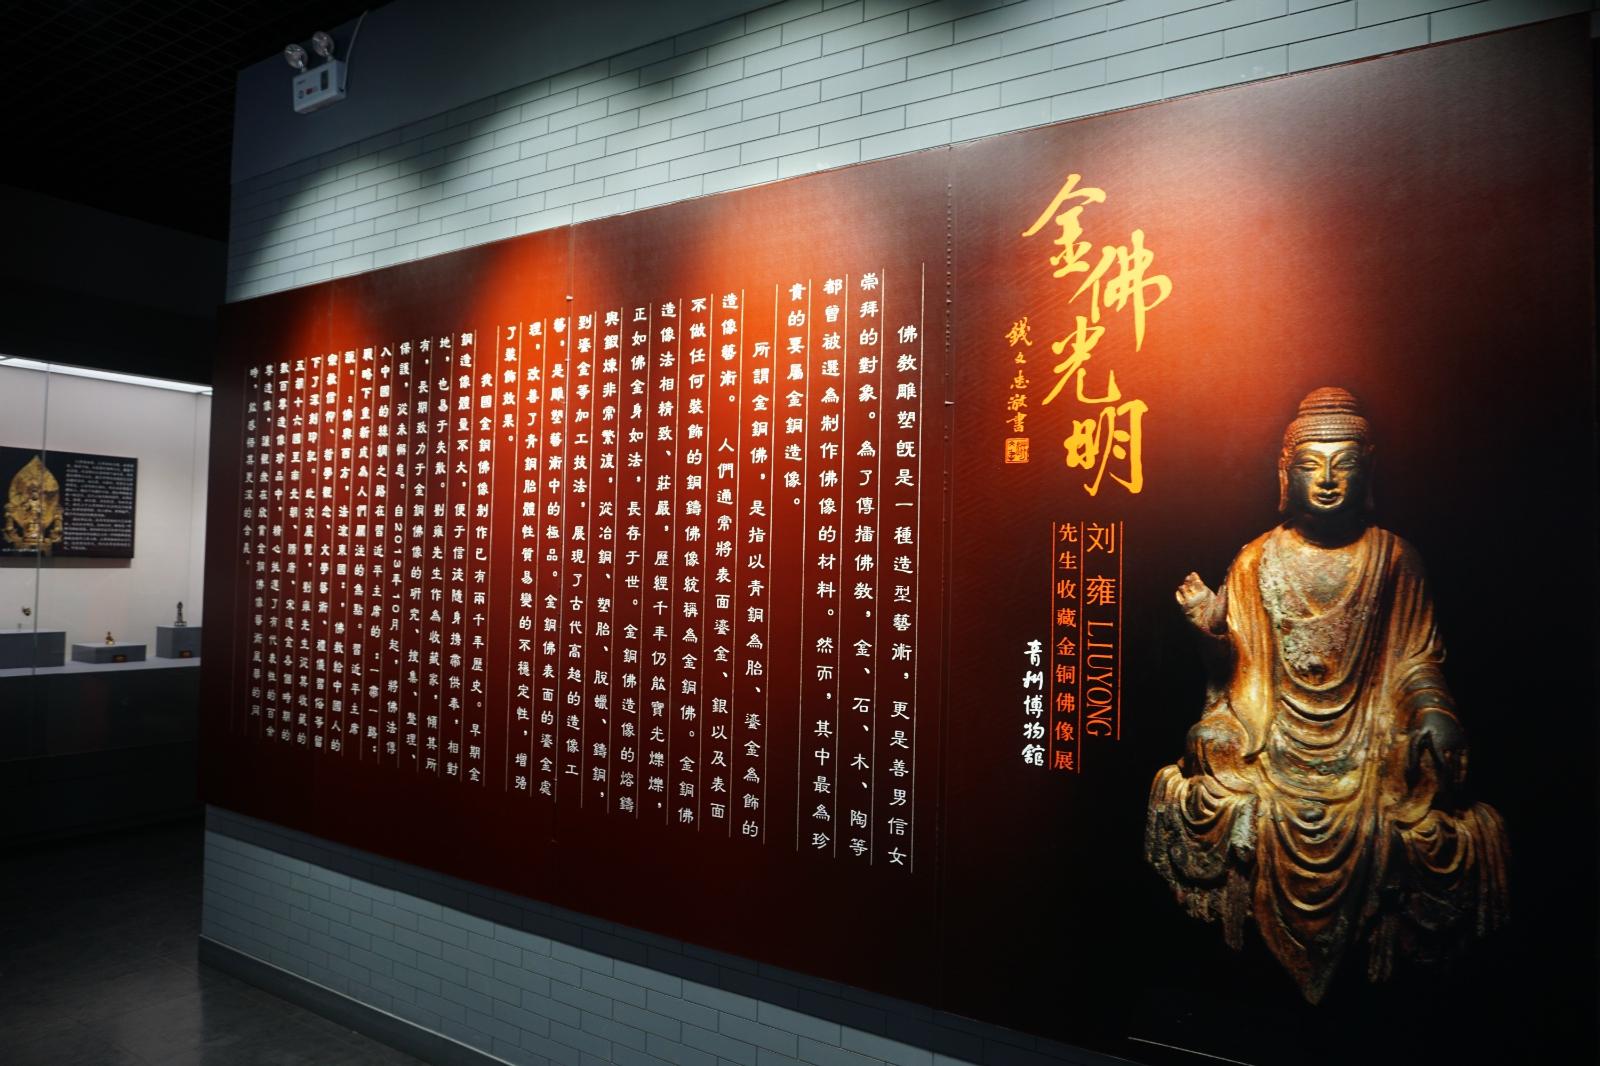 金佛光明
錢文忠敬書
刘雍 LIUYONG
先生收藏金铜佛像展
青州博物館
佛教雕塑既是一種造型藝術，更是善男信女
崇拜的對象。為了傳播佛教，金、石、木、陶等
都曾被選為制作佛像的材料。然而，其中最為珍
貴的要屬金銅造像。
所謂金銅佛，是指以青銅為胎、鎏金為飾的
造像藝術。人們通常將表面鎏金、銀以及表面
不做任何裝飾的銅鑄佛像統稱為金銅佛。金銅佛
造像法相精致、莊嚴，歷經千年仍能寶光爍爍，
正如佛金身如法，長存于世。金銅佛造像的熔鑄
與鍛煉非常繁復，從冶銅、塑胎、脫蠟、鑄銅，
到鎏金等加工技法，展現了古代高超的造像工
藝，是雕塑藝術中的極品。金銅佛表面的鎏金處
理，改善了青銅胎體性質易變的不穩定性，增強
了裝飾效果。
我國金銅佛像制作已有兩千年歷史。早期金
銅造像體量不大，便于信徒隨身攜帶供奉，相對
地，也易于失散。劉雍先生作為收藏家，傾其所
有，長期致力于金銅佛像的研究、搜集、整理、
保護，從未懈怠。自2013年10月起，將佛法傳
入中國的絲綢之路在習近平主席的“一帶一路”
戰略下重新成為人們關注的焦點。習近平主席
說，“佛興西方，法流東國”，佛教給中國人的
宗教信仰、哲學觀念、文學藝術、禮儀習俗等留
下了深刻印記。此次展覽，劉雍先生從其收藏的
五胡十六國至南北朝、隋唐、宋遼金各個時期的
數百尊造像珍品中，精心挑選了有代表性的百余
尊造像，讓觀眾在欣賞金銅佛像藝術風華的同
時，能感悟其更深的含義。